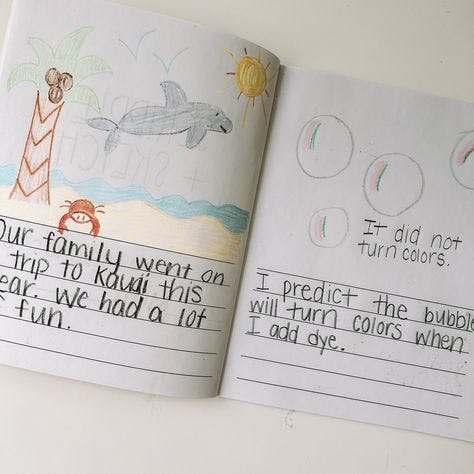 Our family went on
trip to Kauai this
ear. We had a lot
f fun.
It did not
turn colors.
I predict the bubble
will turn colors when
I add dye.